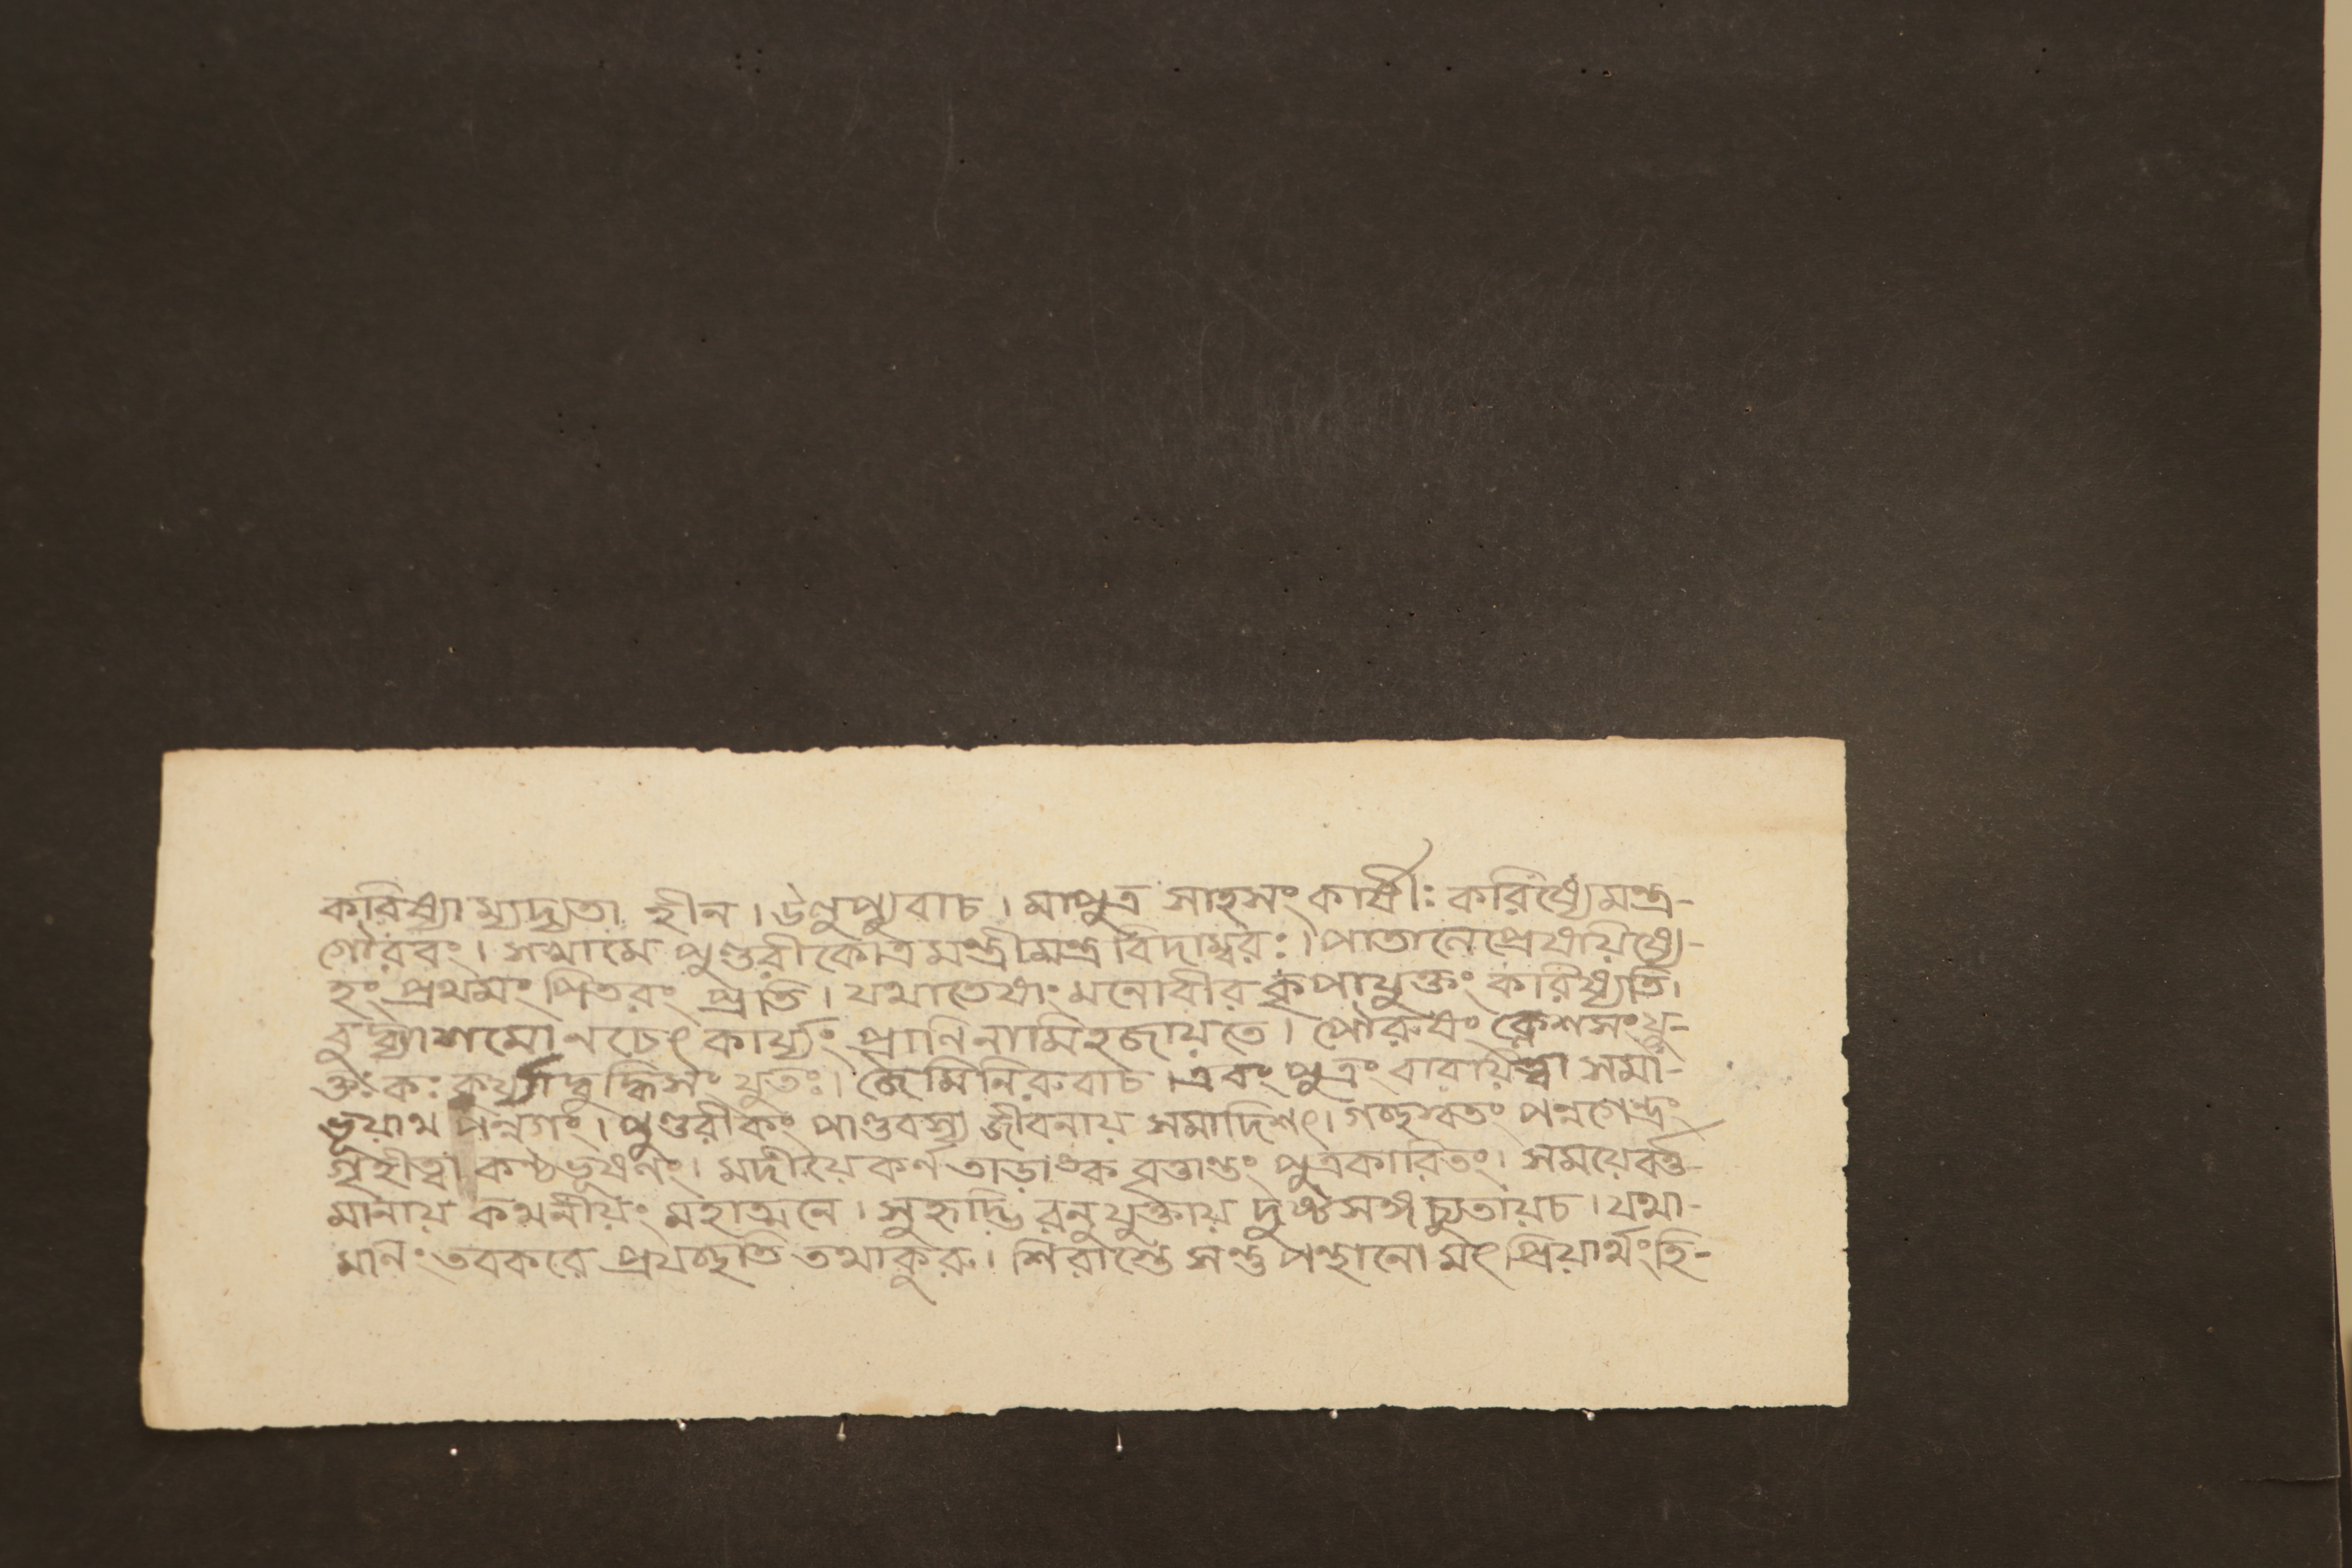 করিষ্যাম্যদ্যতা হীন । উলুপ্যুবাচ । মাপুত্র সাহসং কার্ষীঃ করিষ্যেমন্ত্র-
গৌরবং । সখামে পুণ্ডরীকোত্রমন্ত্রীমন্ত্রবিদাম্বরঃ । পাতানেপ্রেষয়িষ্যে-
হং প্রথমং পিতরং প্রতি । যথাতেষাং মনোবীর কৃপাযুক্তং করিষ্যতি ।
বুদ্ধ্যাশমোনচেৎ কার্য্যং প্রাণিনামিহজায়তে । পৌরুষং ক্লেশসংযু-
ক্তংঃকঃ কুর্য্যাদ্বুদ্ধিসংযুতঃ । জৈমিনিরুবাচ । এবং পুত্রং বারয়িত্বা সমা-
হূয়াথ পন্নগং । পুণ্ডরীকং পাণ্ডবস্য জীবনায় সমাদিশৎ । গচ্ছত্বং পন্নগেন্দ্রং
গৃহীত্বা কণ্ঠভূষণং । মদীয়ৈ কর্ণ তাড়াঙ্ক বৃত্তান্তং পুত্রকারিতং । সময়েবর্ত্ত-
মানায় কথনীয়ং মহাত্মনে । সুহৃদ্ভি রনুযুক্তায় দুষ্টসঙ্গচ্যুতায়চ । যথা-
মানং তবকরে প্রযচ্ছতি তথাকুরু । শিরাস্তে সন্তু পন্থানো মৎ প্রিয়ার্থংহি-